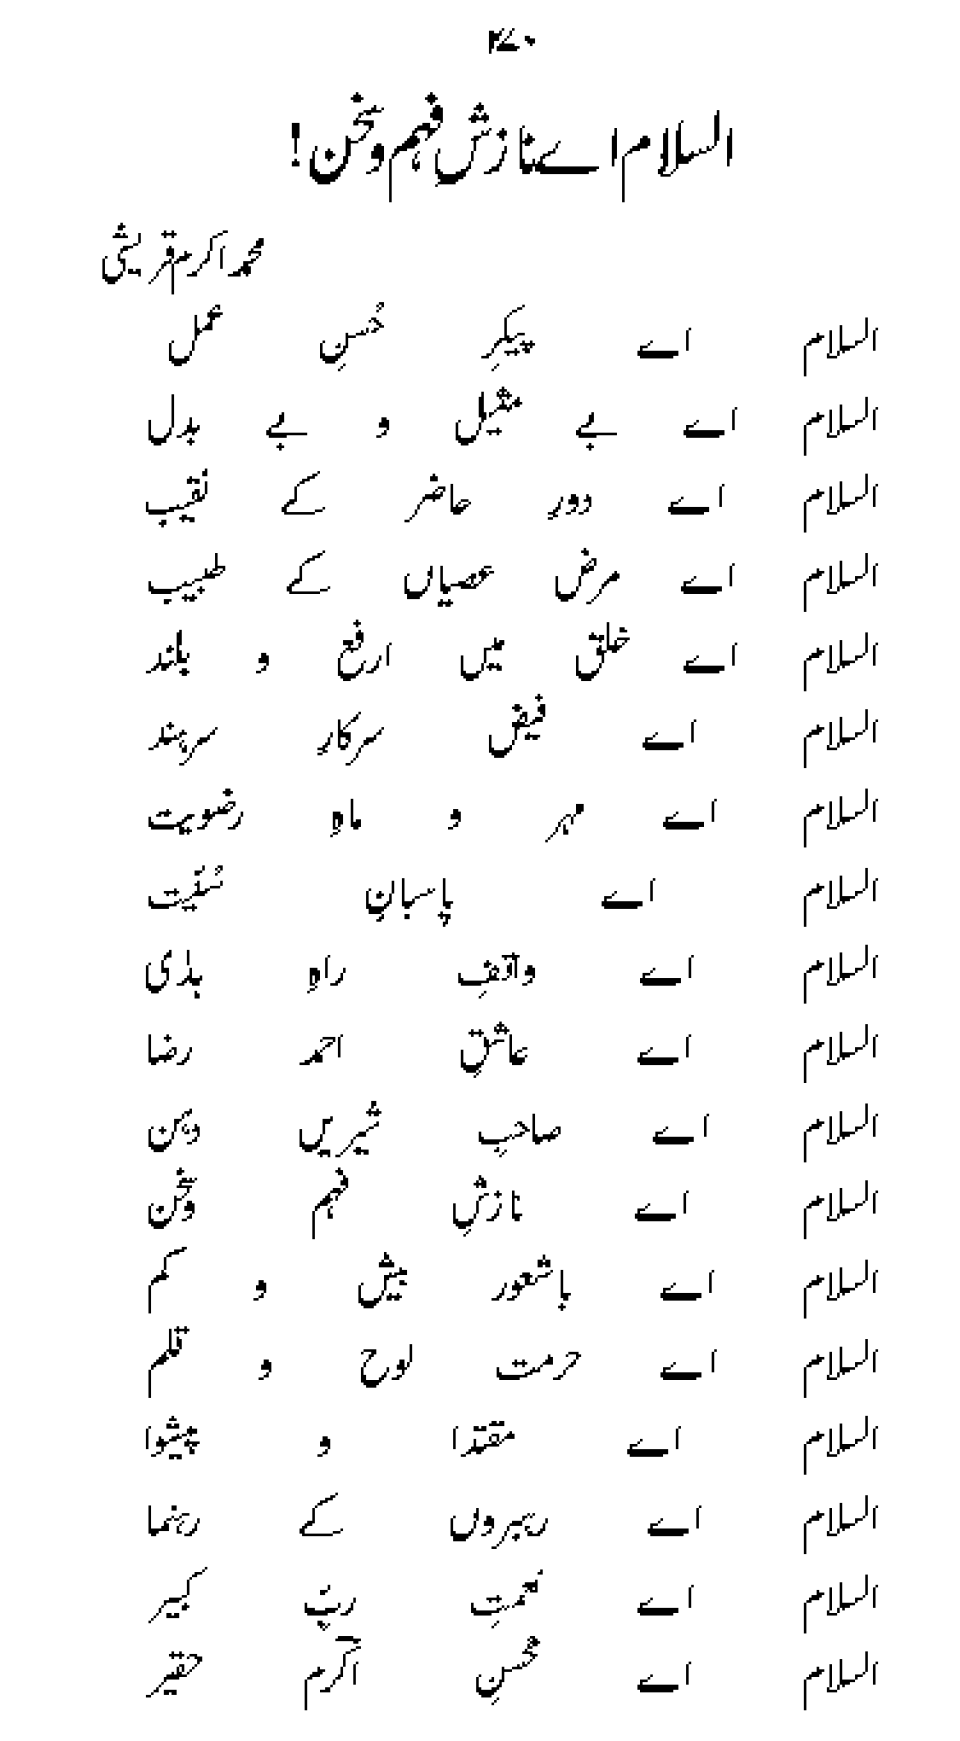 ۴۷۰
السلام اے نازشِ فہم و سخن!
محمد اکرم قریشی
السلام اے پیکرِ حُسنِ عمل
السلام اے بے مثیل و بے بدل
السلام اے دورِ حاضر کے نقیب
السلام اے مرض عصیاں کے طبیب
السلام اے خلق میں ارفع و بلند
السلام اے فیض سرکارِ سرہند
السلام اے مہر و ماہِ رضویت
السلام اے پاسبانِ سُنّیت
السلام اے واقفِ راہِ ہدٰی
السلام اے عاشقِ احمد رضا
السلام اے صاحبِ شیریں دہن
السلام اے نازشِ فہم وسخن
السلام اے باشعور بیش و کم
السلام اے حرمت لوح و قلم
السلام اے مقتدا و پیشوا
السلام اے رہبروں کے رہنما
السلام اے نعمتِ ربِّ کبیر
السلام اے محسنِ اکرم حقیر